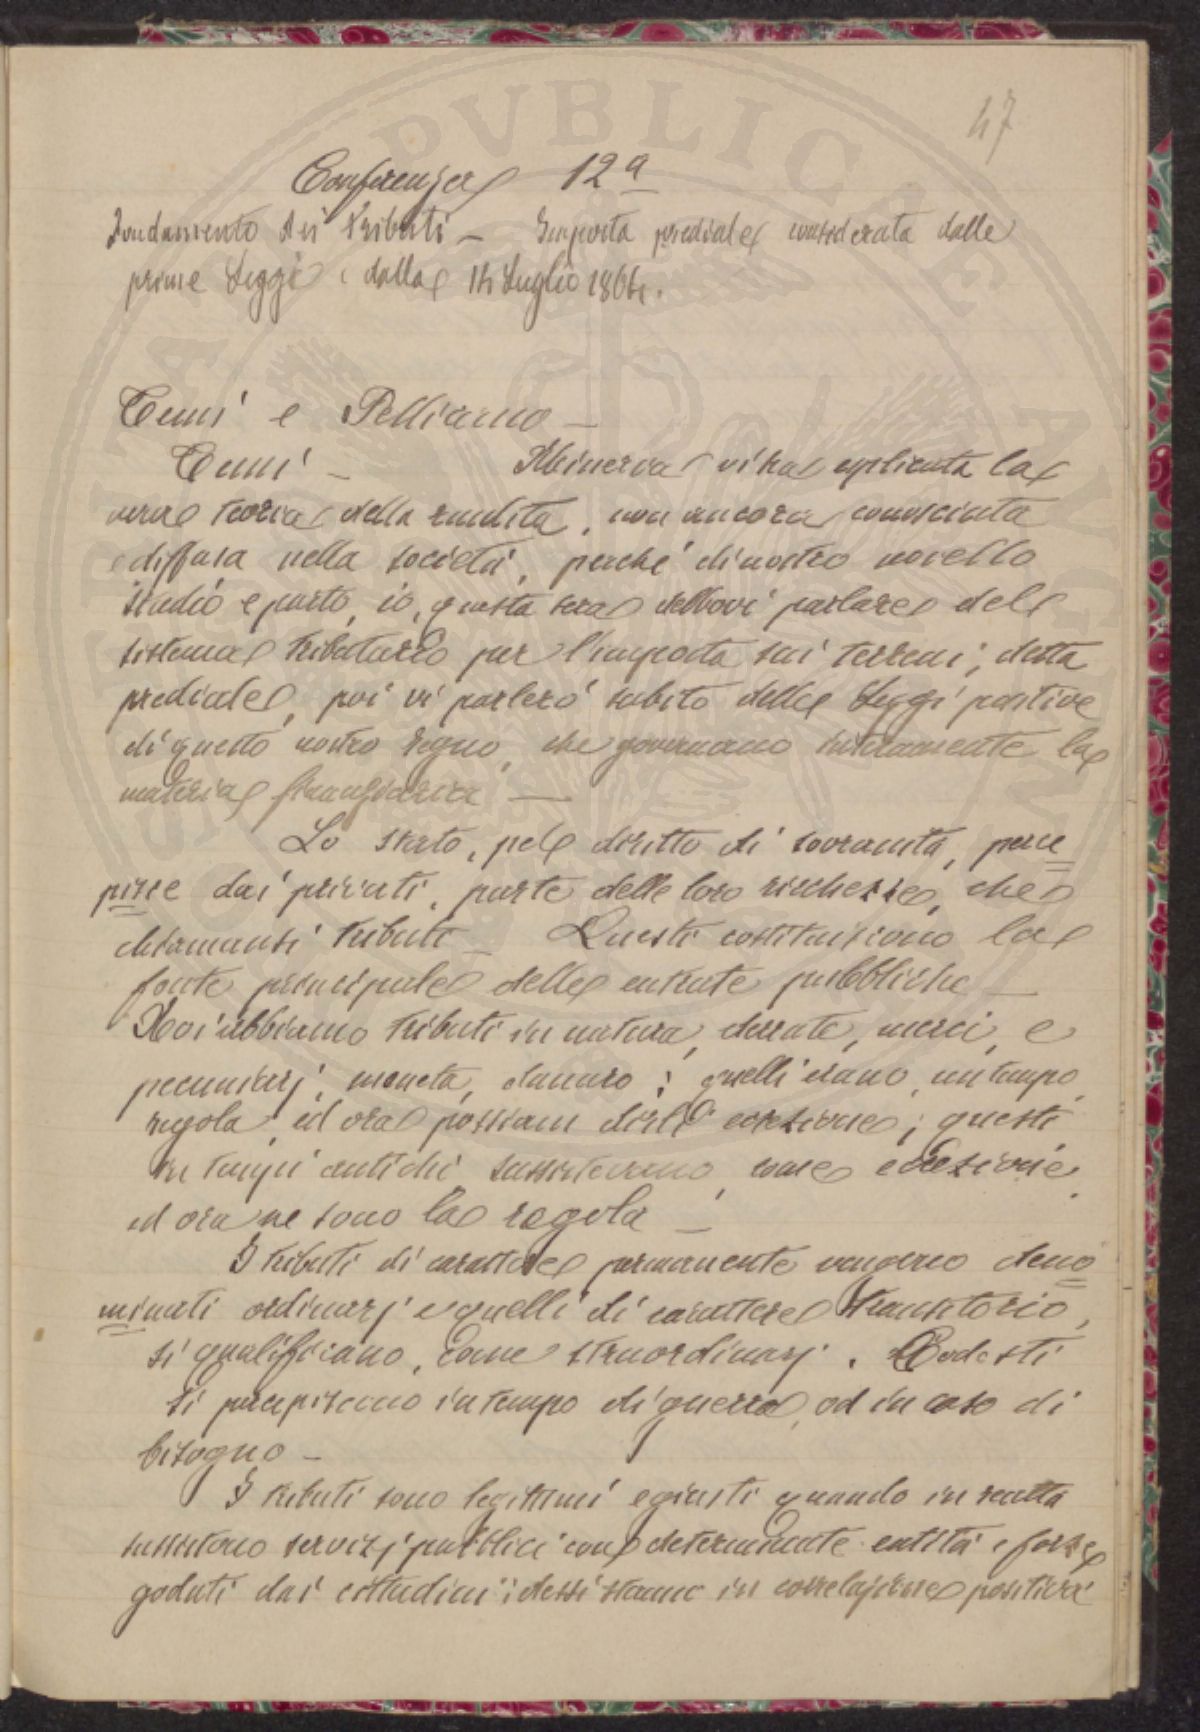 47
Conferenza 12a
Fondamento dei tributi – Imposta prediale considerata dalle
prime Leggi e dalla 14 Luglio 1864.
Temi e Pelliamo –
Temi – Minerva vi ha esplicata la
vera teoria della rendita, non ancora conosciuta
e diffusa nella società, perché di nostro novello
studio e parto, io, questa sera debbovi parlare del
sistema tributario per l'imposta sui terreni, detta
prediale, poi vi parlerò subito delle Leggi positive
di questo nostro Regno, che governano interamente la
materia finanziaria –
Lo stato, pel diritto di sovranità, perce
pisce dai privati, parte delle loro ricchezze, che
chiamansi tributi – Questi costituiscono la
fonte principale delle entrate pubbliche –
Noi abbiamo tributi in natura, derrate, merci, e
pecuniarj, moneta, danaro; quelli erano, un tempo,
regola, ed ora possiam dirli eccezione; questi,
in tempi antichi, sussistevano, come eccezione,
ed ora ne sono la regola –
I tributi di carattere permanente vengono deno
minati ordinarj e quelli di carattere transitorio,
si qualificano, come straordinarj. Codesti
si percepiscono in tempo di guerra, od in caso di
bisogno –
I tributi sono legittimi e giusti quando in realtà
sussistono servizj pubblici con determinate entità e forze
goduti dai cittadini: dessi stanno in correlazione positiva